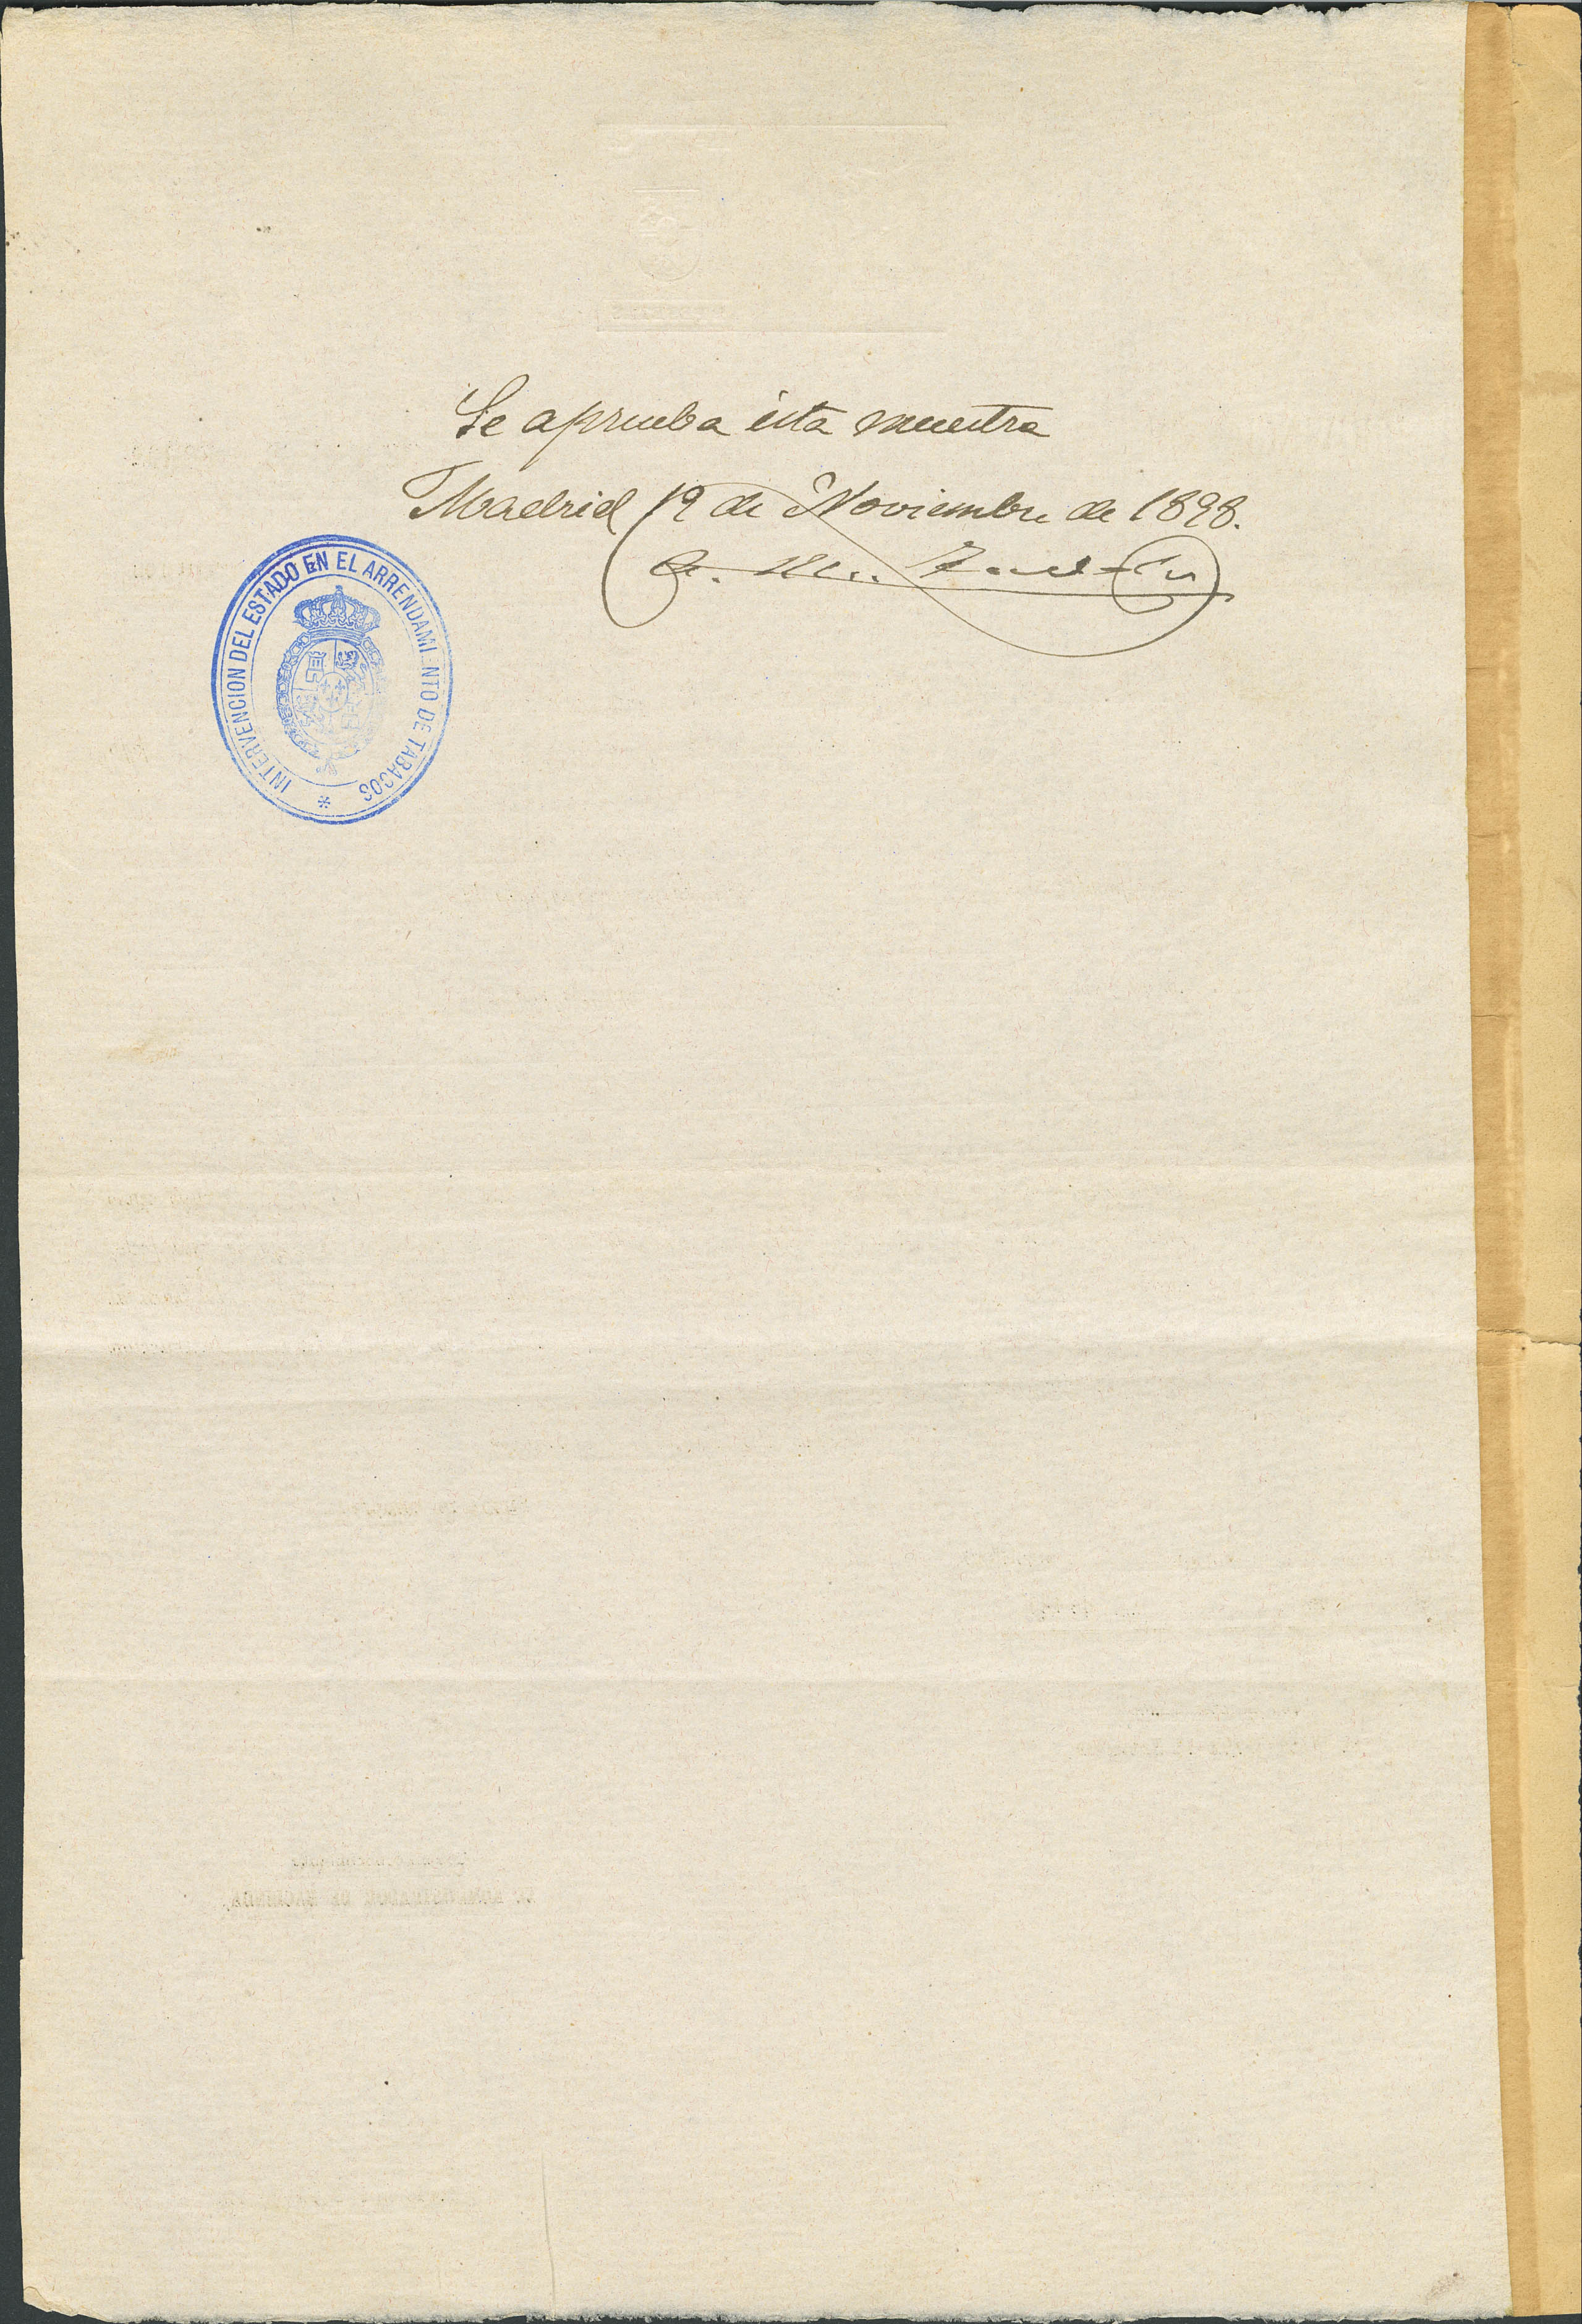 Se aprueba ésta muestra
Madrid 19 de Noviembre de 1898.
INTERVENCION DEL ESTADO EN EL ARRENDAMI NTO DE TABACOS *